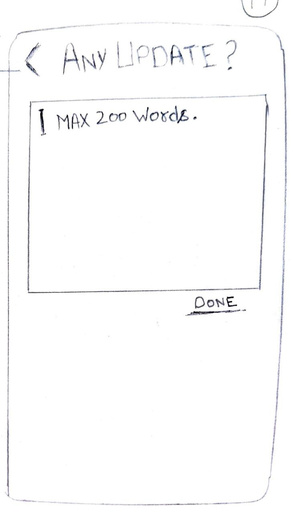 < ANY UPDATE?
MAX 200 Words.
DONE